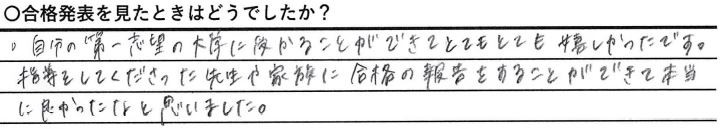 ○合格発表を見たときはどうでしたか？
自分の第一志望の大学に受かることができてとてもとても嬉しかったです。
指導をしてくださった先生や家族に合格の報告をすることができて本当
に良かったなと思いました。